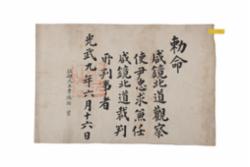 勅命
咸鏡北道觀察
使尹忠求兼任
咸鏡北道裁判
所判事者
光武九年六月十六日